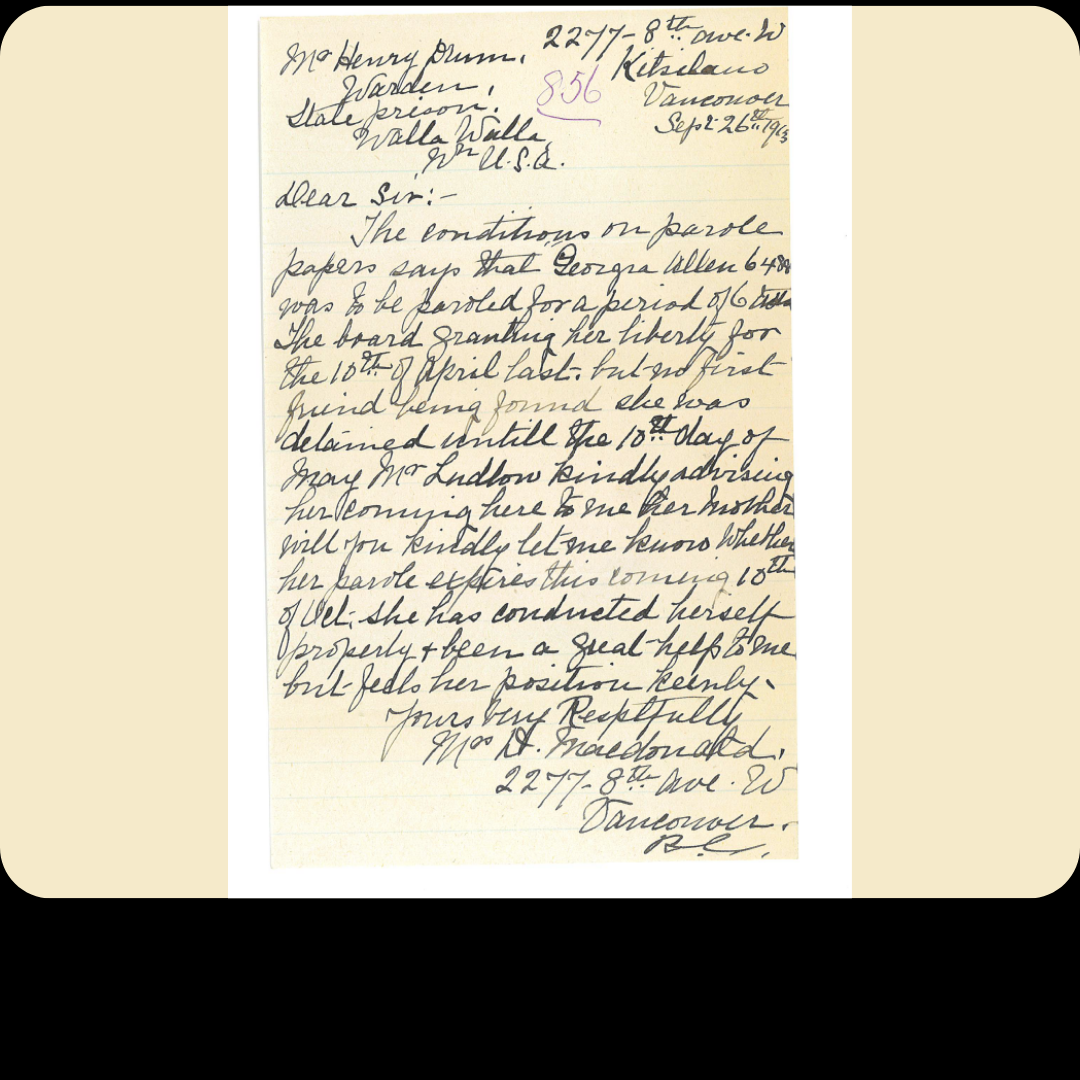 2277 - 8th ave. W
Mr Henry Drum,
Kitsilano
Warden,
856
Vancouver
State prison.
Sept 26th 1913
Walla Walla,
Wn U.S.A.
Dear Sir:-
The conditions on parole
papers says that Georgia Allen 64
was to be paroled for a period of 6
The board granting her liberty for
the 10th of April last. but no first
friend being found she was
detained untill the 10th day of
May Mr Ludlow kindly advising
her coming here to me her Mother
will you kindly let me know whether
her parole expires this coming 10th
of Oct. she has conducted herself
properly + been a great help to me
but feels her position keenly -
yours very Resptfully
Mrs D. Macdonald,
2277 - 8th ave. W
Vancouver.
B.C.,